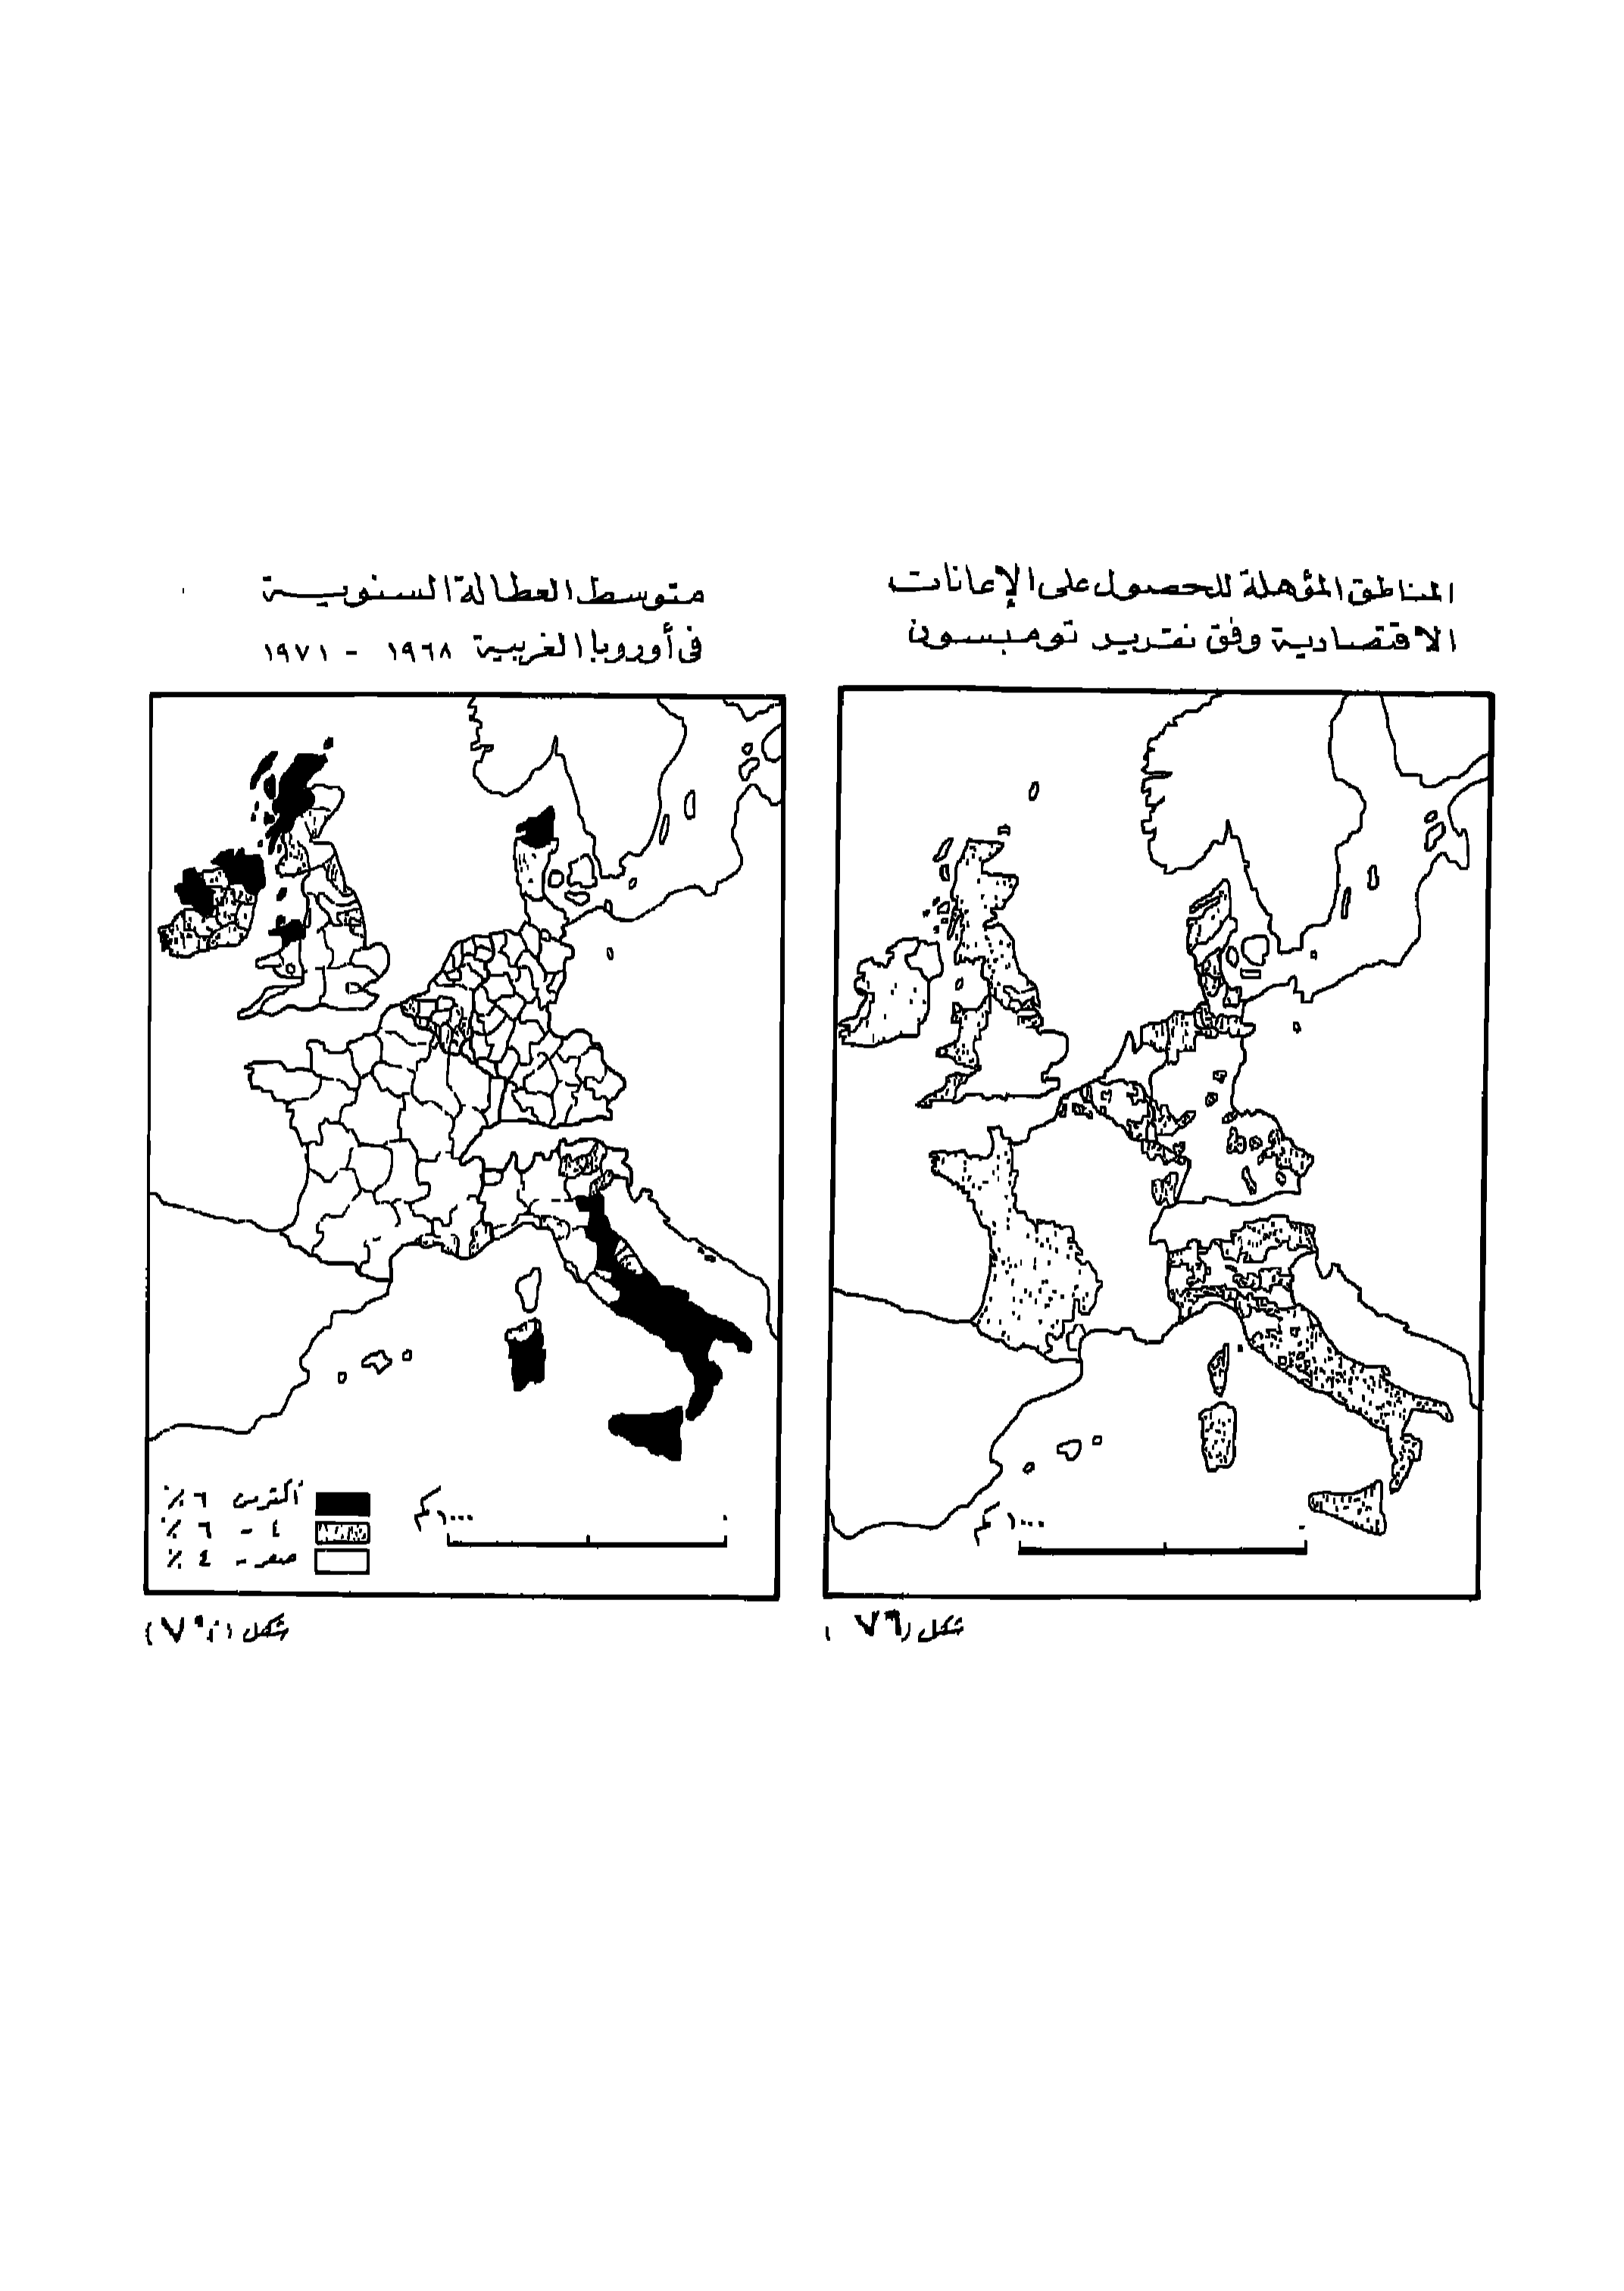 المناطق المؤهلة للحصول على الإعانات
الاقتصادية وفق تقرير تومبسون
١٠٠٠كم
شكل (٧٦)
متوسط العطالة السنوية
فى أوروبا الغربية ١٩٦٨ - ١٩٧١
أكثر من ٦ ٪
٤ - ٦ ٪
صفر - ٤ ٪
١٠٠٠كم
شكل